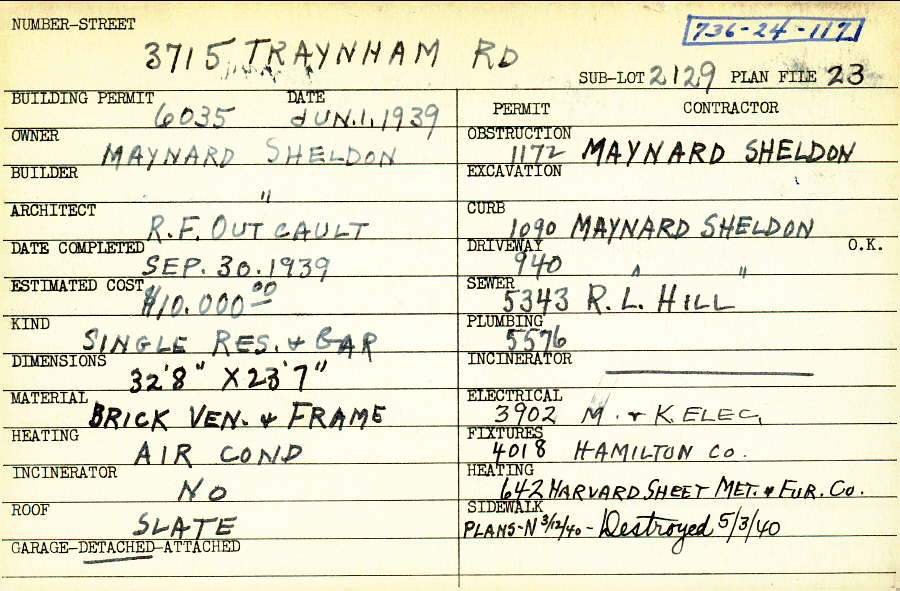 NUMBER-STREET
736-24-117
3715 TRAYNHAM RD
SUB-LOT 2129 PLAN FILE 23
BUILDING PERMIT DATE
6035 JUN.1.1939
OWNER
MAYNARD SHELDON
BUILDER
"
ARCHITECT
R.F. OUTCAULT
DATE COMPLETED
SEP. 30.1939
ESTIMATED COST
$10.000 00
KIND
SINGLE RES. & GAR
DIMENSIONS
32'8" X 23'7"
MATERIAL
BRICK VEN. & FRAME
HEATING
AIR COND
INCINERATOR
NO
ROOF
SLATE
GARAGE-DETACHED-ATTACHED
PERMIT CONTRACTOR
OBSTRUCTION
1172 MAYNARD SHELDON
EXCAVATION
CURB
1090 MAYNARD SHELDON
DRIVEWAY O.K.
940 " "
SEWER
5343 R.L. HILL
PLUMBING
5576
INCINERATOR
ELECTRICAL
3902 M. & K. ELEC,
FIXTURES
4018 HAMILTON CO.
HEATING
642 HARVARD SHEET MET. & FUR. CO.
SIDEWALK
PLANS-N 3/12/40 - Destroyed 5/3/40